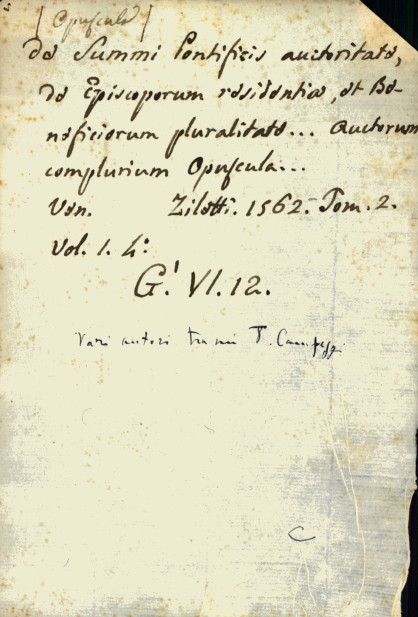 [Opuscula]
de Summi Pontificis auctoritate,
de Episcoporum residentia, et Be-
neficiorum pluralitate... Auctorum
complurium Opuscula...
Ven. Ziletti. 1562. Tom. 2.
Vol. 1. 4:
G.' VI. 12.
Vari autori tra cui T. Campeggi
C